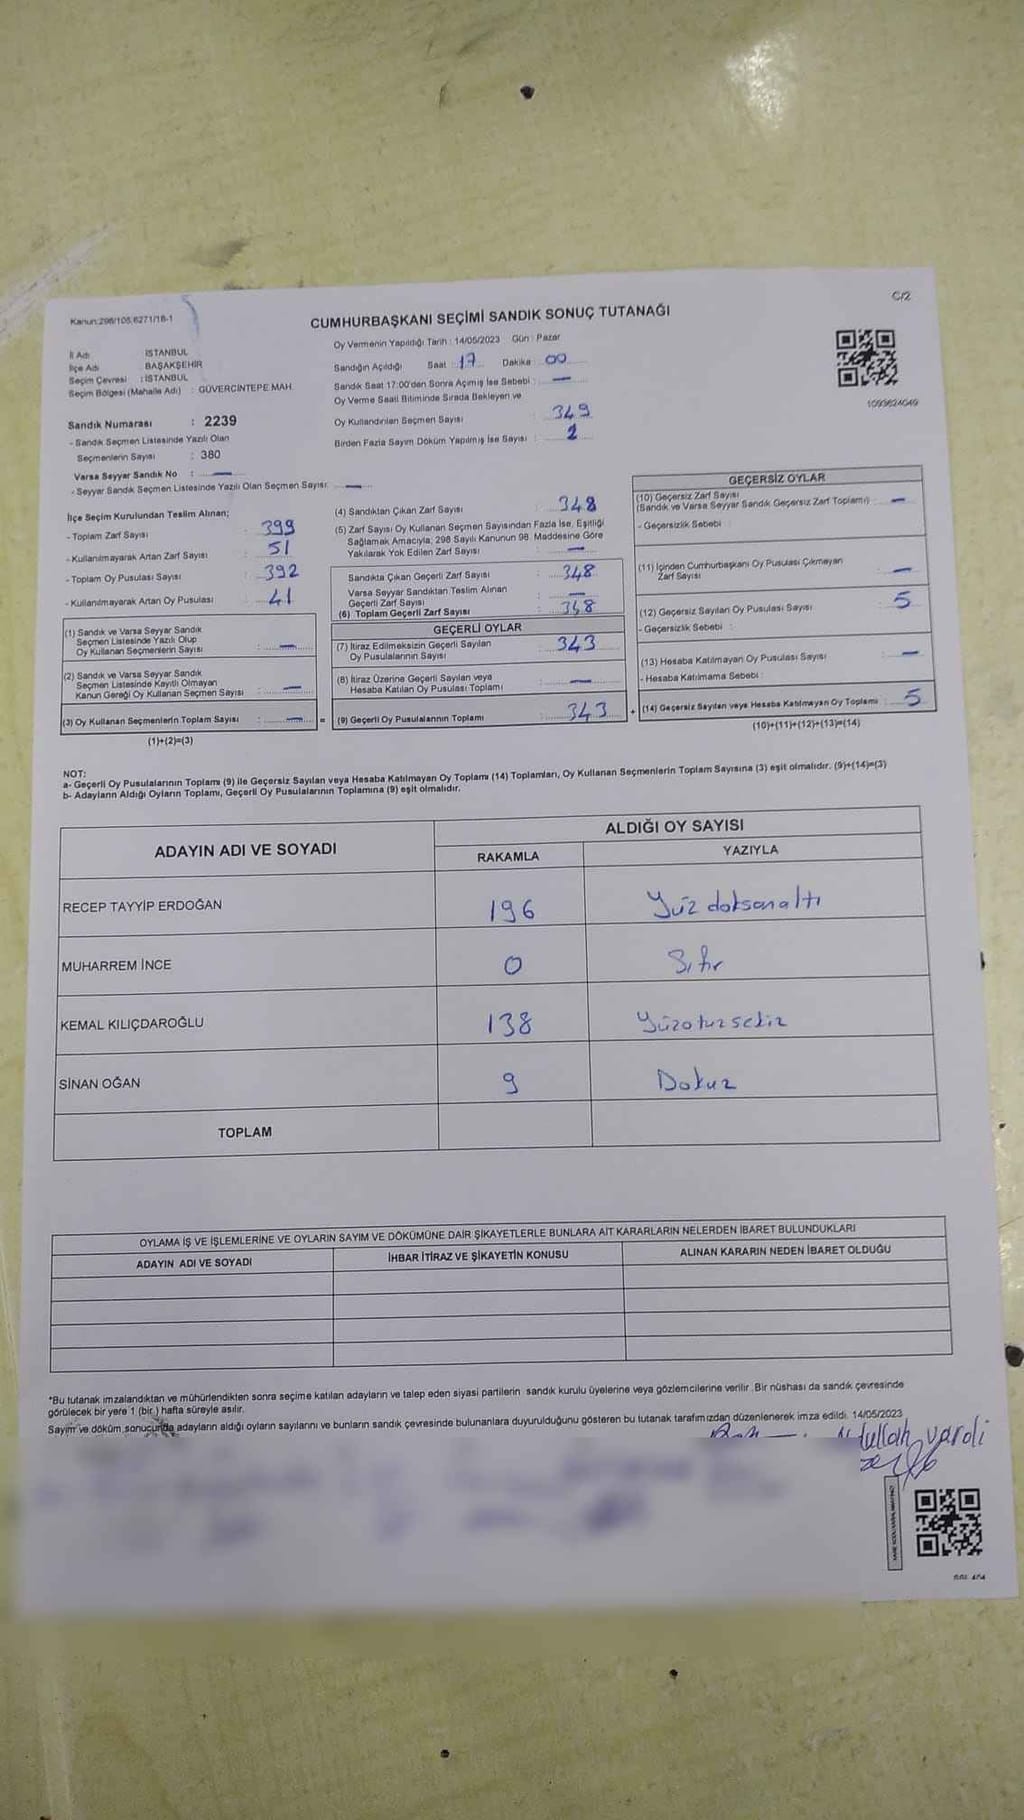 Kanun:298/105,6271/18-1
C/2
CUMHURBAŞKANI SEÇİMİ SANDIK SONUÇ TUTANAĞI
Oy Vermenin Yapıldığı Tarih : 14/05/2023 Gün : Pazar
İl Adı İSTANBUL
İlçe Adı BAŞAKŞEHİR
Seçim Çevresi : İSTANBUL
Seçim Bölgesi (Mahalle Adı) : GÜVERCİNTEPE MAH.
Sandığın Açıldığı Saat : 17 Dakika : 00
Sandık Saat 17:00'den Sonra Açımış İse Sebebi : —
Oy Verme Saati Bitiminde Sırada Bekleyen ve
Oy Kullandırılan Seçmen Sayısı : 349
Birden Fazla Sayım Döküm Yapılmış İse Sayısı : 2
1093624049
Sandık Numarası : 2239
- Sandık Seçmen Listesinde Yazılı Olan
Seçmenlerin Sayısı : 380
Varsa Seyyar Sandık No : —
- Seyyar Sandık Seçmen Listesinde Yazılı Olan Seçmen Sayısı: —
İlçe Seçim Kurulundan Teslim Alınan;
- Toplam Zarf Sayısı : 399
- Kullanılmayarak Artan Zarf Sayısı : 51
- Toplam Oy Pusulası Sayısı : 392
- Kullanılmayarak Artan Oy Pusulası : 41
(1) Sandık ve Varsa Seyyar Sandık
Seçmen Listesinde Yazılı Olup
Oy Kullanan Seçmenlerin Sayısı : —
(2) Sandık ve Varsa Seyyar Sandık
Seçmen Listesinde Kayıtlı Olmayan
Kanun Gereği Oy Kullanan Seçmen Sayısı : —
(3) Oy Kullanan Seçmenlerin Toplam Sayısı : — =
(1)+(2)=(3)
(4) Sandıktan Çıkan Zarf Sayısı : 348
(5) Zarf Sayısı Oy Kullanan Seçmen Sayısından Fazla İse, Eşitliği
Sağlamak Amacıyla; 298 Sayılı Kanunun 98. Maddesine Göre
Yakılarak Yok Edilen Zarf Sayısı : —
Sandıkta Çıkan Geçerli Zarf Sayısı : 348
Varsa Seyyar Sandıktan Teslim Alınan
Geçerli Zarf Sayısı : —
(6) Toplam Geçerli Zarf Sayısı : 348
GEÇERLİ OYLAR
(7) İtiraz Edilmeksizin Geçerli Sayılan
Oy Pusulalarının Sayısı : 343
(8) İtiraz Üzerine Geçerli Sayılan veya
Hesaba Katılan Oy Pusulası Toplamı : —
(9) Geçerli Oy Pusulalarının Toplamı : 343 +
GEÇERSİZ OYLAR
(10) Geçersiz Zarf Sayısı
(Sandık ve Varsa Seyyar Sandık Geçersiz Zarf Toplamı) : —
- Geçersizlik Sebebi :
(11) İçinden Cumhurbaşkanı Oy Pusulası Çıkmayan
Zarf Sayısı : —
(12) Geçersiz Sayılan Oy Pusulası Sayısı : 5
- Geçersizlik Sebebi :
(13) Hesaba Katılmayan Oy Pusulası Sayısı : —
- Hesaba Katılmama Sebebi :
(14) Geçersiz Sayılan veya Hesaba Katılmayan Oy Toplamı : 5
(10)+(11)+(12)+(13)=(14)
NOT:
a- Geçerli Oy Pusulalarının Toplamı (9) ile Geçersiz Sayılan veya Hesaba Katılmayan Oy Toplamı (14) Toplamları, Oy Kullanan Seçmenlerin Toplam Sayısına (3) eşit olmalıdır. (9)+(14)=(3)
b- Adayların Aldığı Oyların Toplamı, Geçerli Oy Pusulalarının Toplamına (9) eşit olmalıdır.
ADAYIN ADI VE SOYADI
ALDIĞI OY SAYISI
RAKAMLA YAZIYLA
RECEP TAYYİP ERDOĞAN 196 Yüz doksanaltı
MUHARREM İNCE 0 Sıfır
KEMAL KILIÇDAROĞLU 138 Yüzotuzsekiz
SİNAN OĞAN 9 Dokuz
TOPLAM
OYLAMA İŞ VE İŞLEMLERİNE VE OYLARIN SAYIM VE DÖKÜMÜNE DAİR ŞİKAYETLERLE BUNLARA AİT KARARLARIN NELERDEN İBARET BULUNDUKLARI
ADAYIN ADI VE SOYADI İHBAR İTİRAZ VE ŞİKAYETİN KONUSU ALINAN KARARIN NEDEN İBARET OLDUĞU
*Bu tutanak imzalandıktan ve mühürlendikten sonra seçime katılan adayların ve talep eden siyasi partilerin sandık kurulu üyelerine veya gözlemcilerine verilir. Bir nüshası da sandık çevresinde
görülecek bir yere 1 (bir ) hafta süreyle asılır.
Sayım ve döküm sonucunda adayların aldığı oyların sayılarını ve bunların sandık çevresinde bulunanlara duyurulduğunu gösteren bu tutanak tarafımızdan düzenlenerek imza edildi. 14/05/2023